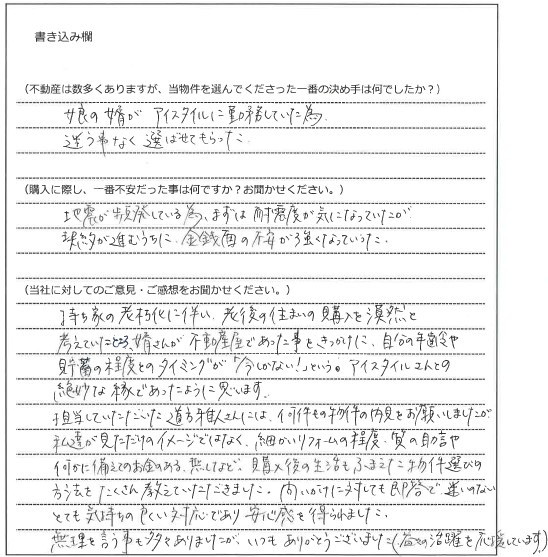 書き込み欄
（不動産は数多くありますが、当物件を選んでくださった一番の決め手は何でしたか？）
娘の婿が アイスタイルに勤務していた為
迷う事なく 選ばせてもらった。
（購入に際し、一番不安だった事は何ですか？お聞かせください。）
地震が頻発している為、まずは 耐震度が気になっていたが
契約が進むうちに、金銭面の不安が強くなっていった。
（当社に対してのご意見・ご感想をお聞かせください。）
持ち家の老朽化に伴い、老後の住まいの購入を漠然と
考えていたところ、婿さんが不動産屋であった事をきっかけに、自分の年齢や
貯蓄の程度とのタイミングが「今しかない!」という。アイスタイルさんとの
絶妙な縁であったように思います。
担当していただいた 道方雅人さんには、何件もの物件の内見をお願いしましたが
私達が見ただけのイメージではなく、細かいリフォームの程度、質の助言や
何かに備えてのお金のある、無しなど、購入後の生活もふまえた物件選びの
方法をたくさん教えていただきました。問いかけに対しても即答で迷いのない
とても気持ちの良い対応であり 安心感を得られました。
無理を言う事も多々ありましたが、いつもありがとうございました(益々の活躍を応援しています)